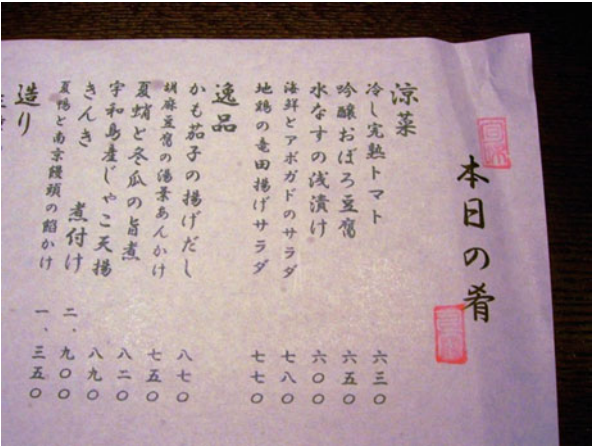 本日の肴
涼菜
冷し完熟トマト 六三〇
吟醸おぼろ豆腐 六五〇
水なすの浅漬け 六〇〇
海鮮とアボガドのサラダ 七八〇
地鶏の竜田揚げサラダ 七七〇
逸品
かも茄子の揚げだし 八七〇
胡麻豆腐の湯葉あんかけ 七五〇
夏蛸と冬瓜の旨煮 八二〇
宇和島産じゃこ天揚 八九〇
きんき 煮付け 二、九〇〇
夏鴨と南京饅頭の餡かけ 一、三五〇
造り